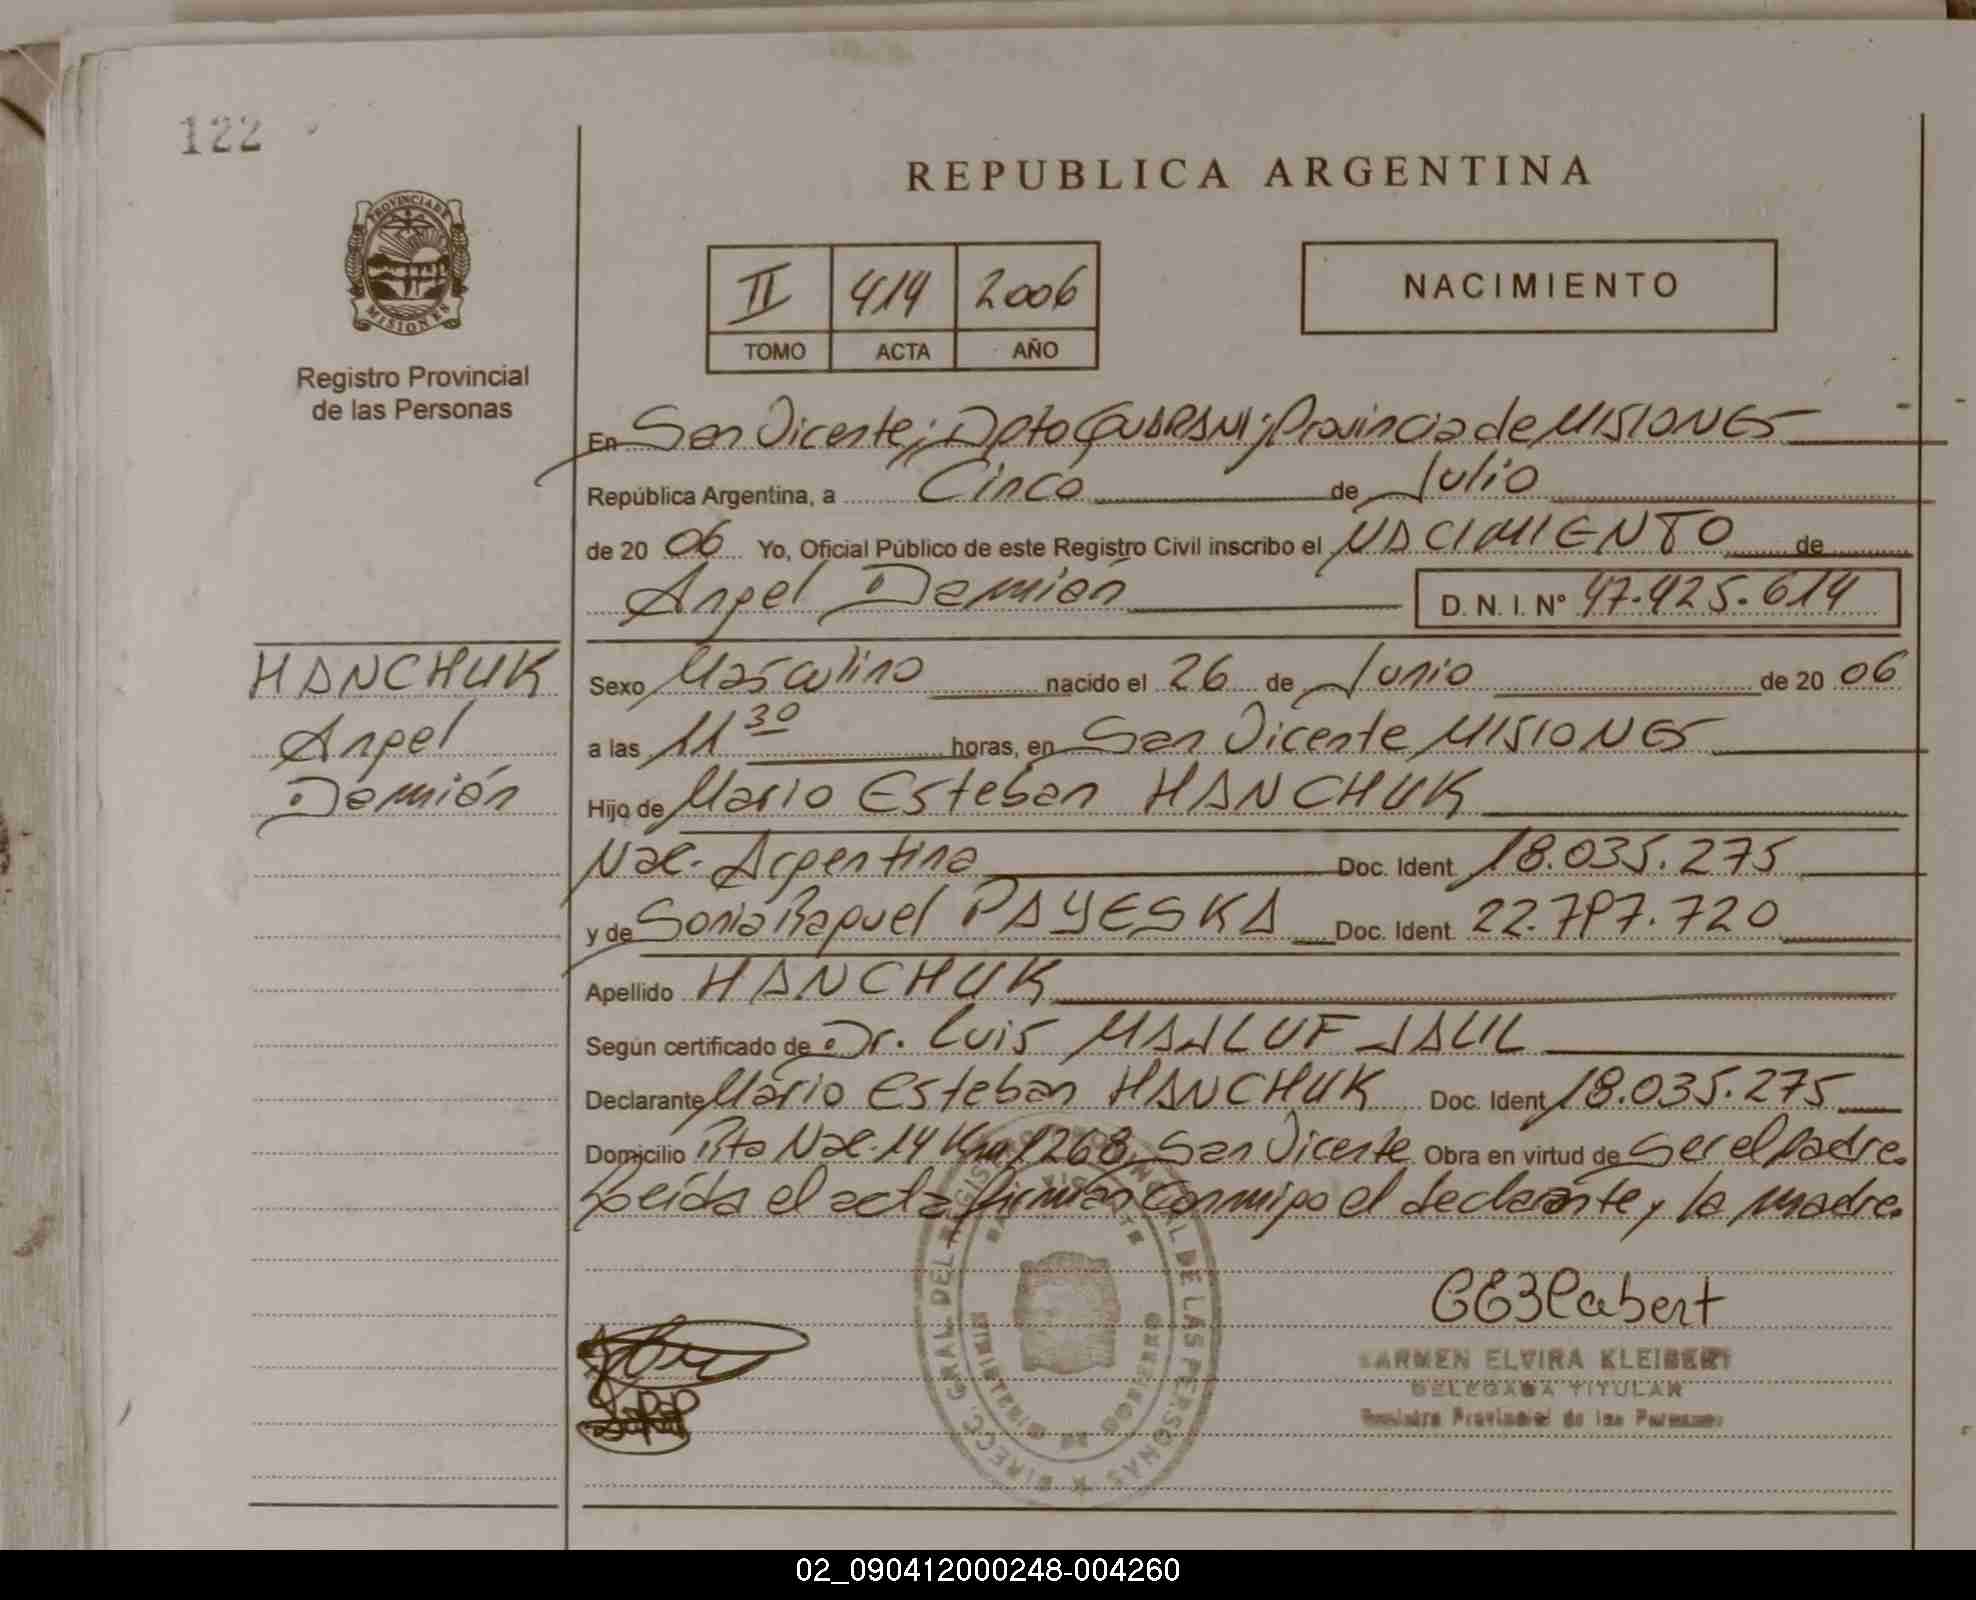 122
REPUBLICA ARGENTINA
PROVINCIA DE
MISIONES
Registro Provincial
de las Personas
II 414 2006
TOMO ACTA AÑO
NACIMIENTO
En San Vicente; Dpto GUARANI; Provincia de MISIONES
República Argentina, a Cinco de Julio
de 20 06 Yo, Oficial Público de este Registro Civil inscribo el NACIMIENTO de
Angel Damián D. N. I. Nº 47.425.614
HANCHUK
Angel
Damián
Sexo Masculino nacido el 26 de Junio de 20 06
a las 11 30 horas, en San Vicente MISIONES
Hijo de Mario Esteban HANCHUK
Nac. Argentina Doc. Ident. 18.035.275
y de Sonia Raquel PAYESKA Doc. Ident. 22.797.720
Apellido HANCHUK
Según certificado de Dr. Luis MAJLUF JALIL
Declarante Mario Esteban HANCHUK Doc. Ident 18.035.275
Domicilio Rta Nac. 14 Km 1268 San Vicente Obra en virtud de Ser el padre.
Leída el acta firman conmigo el declarante y la madre.
DIRECC. GRAL DEL REGISTRO PROVINCIAL DE LAS PERSONAS
CARMEN ELVIRA KLEIBERT
DELEGADA TITULAR
Registro Provincial de las Personas
02_090412000248-004260